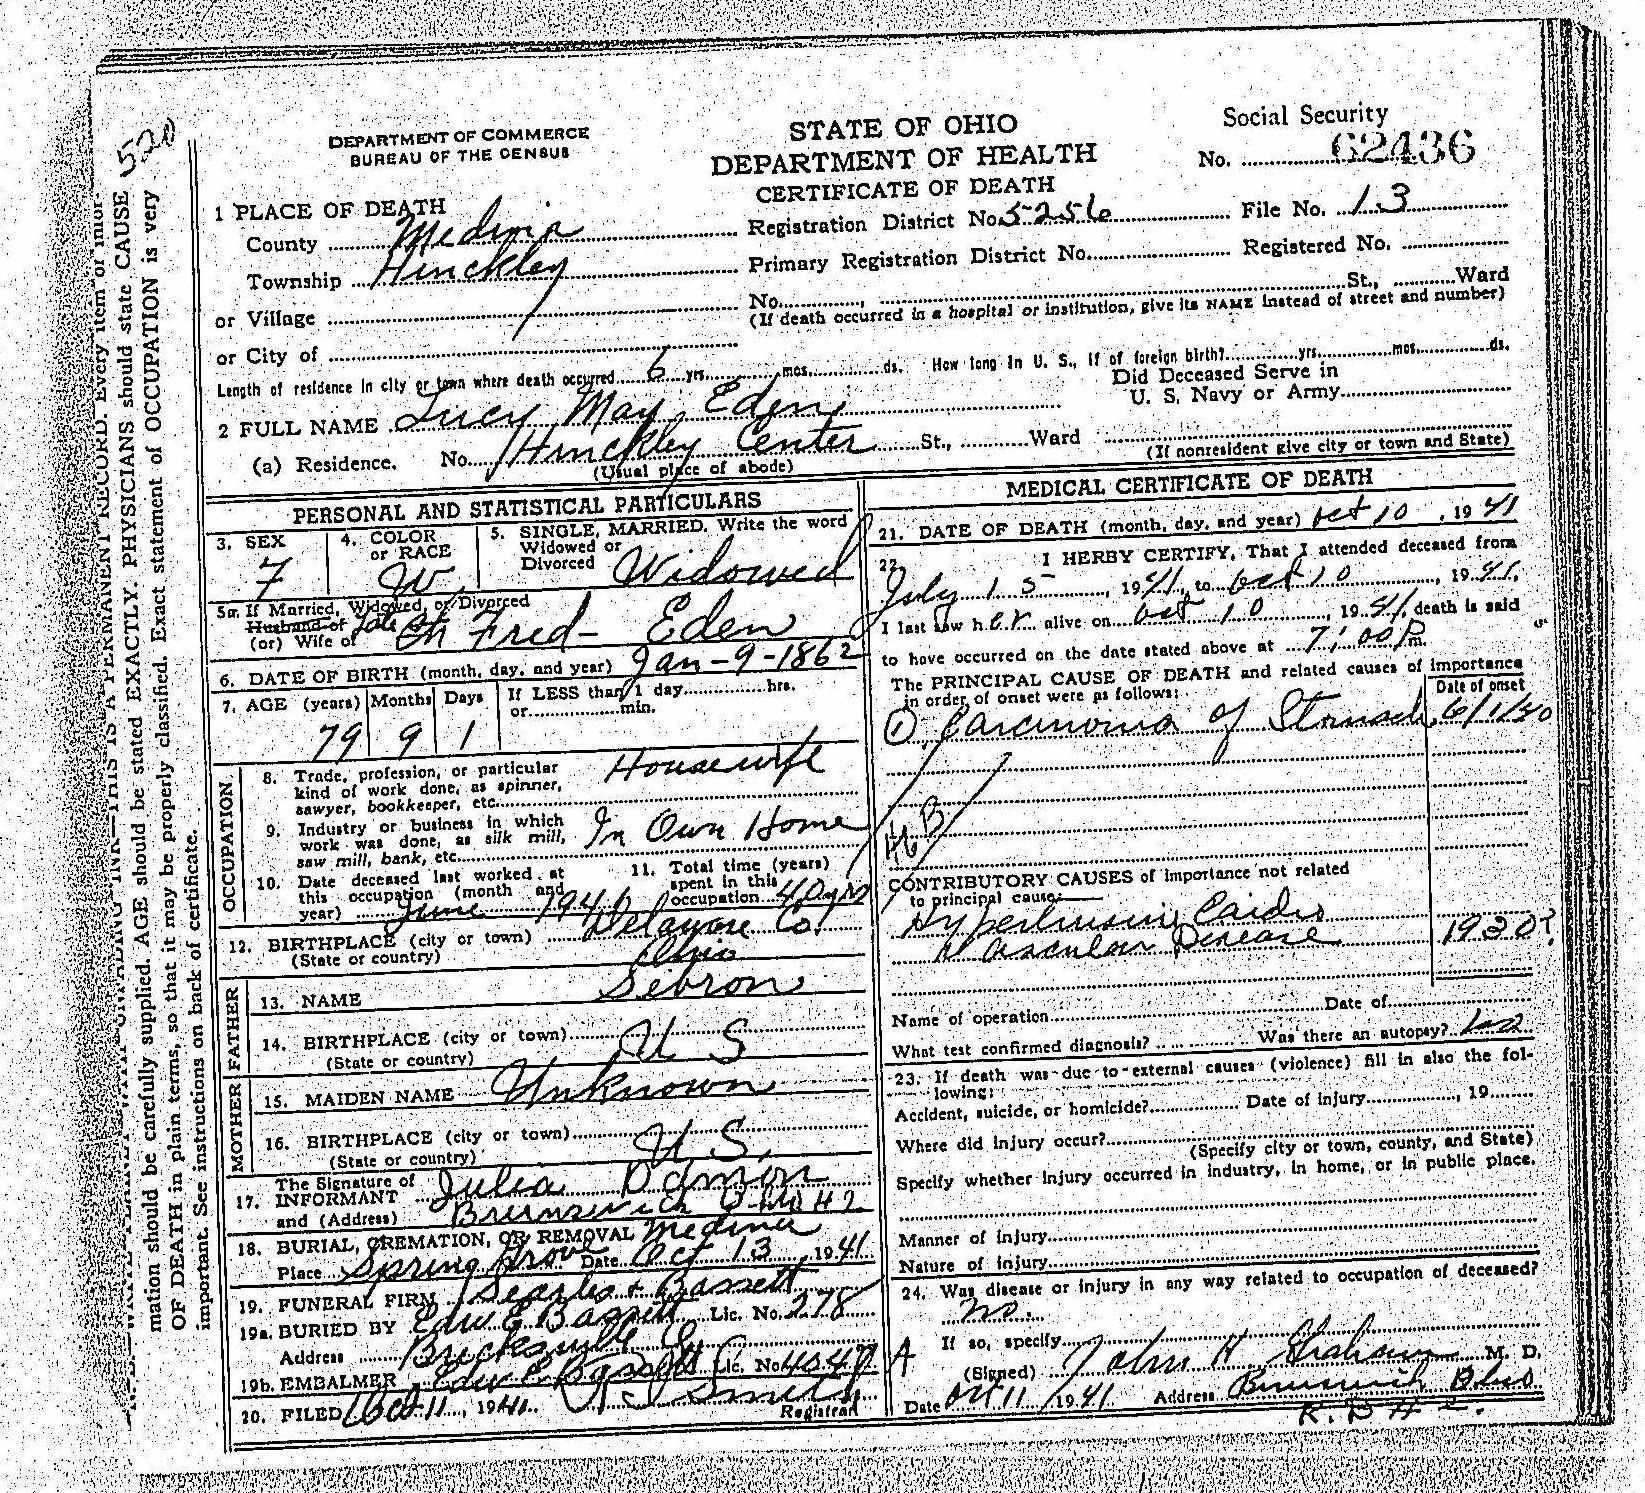 520
DEPARTMENT OF COMMERCE
BUREAU OF THE CENSUS
STATE OF OHIO
DEPARTMENT OF HEALTH
CERTIFICATE OF DEATH
Social Security
No. 62436
1 PLACE OF DEATH
County Medina
Township Hinckley
or Village
or City of
Registration District No. 5256 File No. 13
Primary Registration District No. Registered No.
No. , St., Ward
(If death occurred in a hospital or institution, give its NAME instead of street and number)
Length of residence in city or town where death occurred 6 yrs. mos. ds. How long in U. S., if of foreign birth? yrs. mos. ds.
Did Deceased Serve in
U. S. Navy or Army
2 FULL NAME Lucy May Eden
(a) Residence. No. Hinckley Center St., Ward
(Usual place of abode) (If nonresident give city or town and State)
PERSONAL AND STATISTICAL PARTICULARS
3. SEX
F
4. COLOR
or RACE
W
5. SINGLE, MARRIED. Write the word
Widowed or
Divorced
Widowed
5a. If Married, Widowed, or Divorced
Husband of
(or) Wife of Fred Eden
6. DATE OF BIRTH (month, day, and year) Jan-9-1862
7. AGE (years) Months Days If LESS than 1 day hrs.
or min.
79 9 1
OCCUPATION
8. Trade, profession, or particular
kind of work done, as spinner,
sawyer, bookkeeper, etc.
Housewife
9. Industry or business in which
work was done, as silk mill,
saw mill, bank, etc.
In Own Home
10. Date deceased last worked at
this occupation (month and
year) June 194
11. Total time (years)
spent in this
occupation 40 yrs
12. BIRTHPLACE (city or town) Delaware Co.
(State or country) Ohio
FATHER
13. NAME Sebron
14. BIRTHPLACE (city or town)
(State or country) U S
MOTHER
15. MAIDEN NAME Unknown
16. BIRTHPLACE (city or town)
(State or country) U S.
17. The Signature of
INFORMANT Julia
and (Address) Brunswick Ohio
18. BURIAL, CREMATION, OR REMOVAL Medina
Place Spring Grove Date Oct 13, 1941
19. FUNERAL FIRM Searles & Bassett
19a. BURIED BY Edw E Bassett Lic. No. 278
Address Brecksville O
19b. EMBALMER Edw E Bassett Lic. No.
20. FILED Oct 11, 1941. Smith
Registrar
MEDICAL CERTIFICATE OF DEATH
21. DATE OF DEATH (month, day, and year) Oct 10, 1941
22. I HERBY CERTIFY, That I attended deceased from
July 15, 1941 to Oct 10, 1941.
I last saw her alive on Oct 10, 1941, death is said
to have occurred on the date stated above at 7:00 P. m.
The PRINCIPAL CAUSE OF DEATH and related causes of importance
in order of onset were as follows:
Date of onset
① Carcinoma of Stomach 6/1/40
46 B
CONTRIBUTORY CAUSES of importance not related
to principal cause:
Hypertensive Cardio
Vascular Disease 1930?
Name of operation Date of
What test confirmed diagnosis? Was there an autopsy? no
23. If death was due to external causes (violence) fill in also the fol-
lowing:
Accident, suicide, or homicide? Date of injury , 19
Where did injury occur?
(Specify city or town, county, and State)
Specify whether injury occurred in industry, in home, or in public place.
Manner of injury
Nature of injury
24. Was disease or injury in any way related to occupation of deceased?
no.
If so, specify
(Signed) John H Graham M. D.
Date Oct 11 1941 Address Brunswick Ohio
MANENT RECORD. Every item of infor-
mation should be carefully supplied. AGE should be stated EXACTLY. PHYSICIANS should state CAUSE
OF DEATH in plain terms, so that it may be properly classified. Exact statement of OCCUPATION is very
important. See instructions on back of certificate.